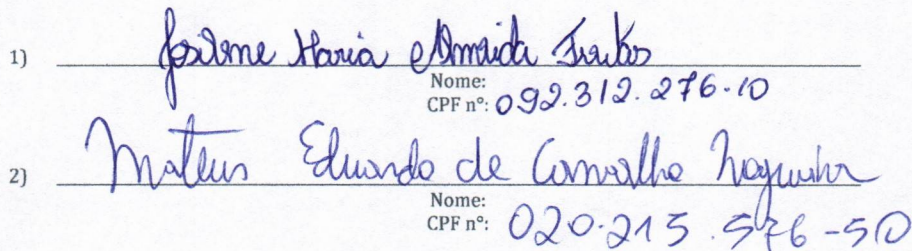 1) Josilene Maria Almeida Freitas
Nome:
CPF nº: 092.312.276-10
2) Mateus Eduardo de Carvalho Nogueira
Nome:
CPF nº: 020.215.576-50